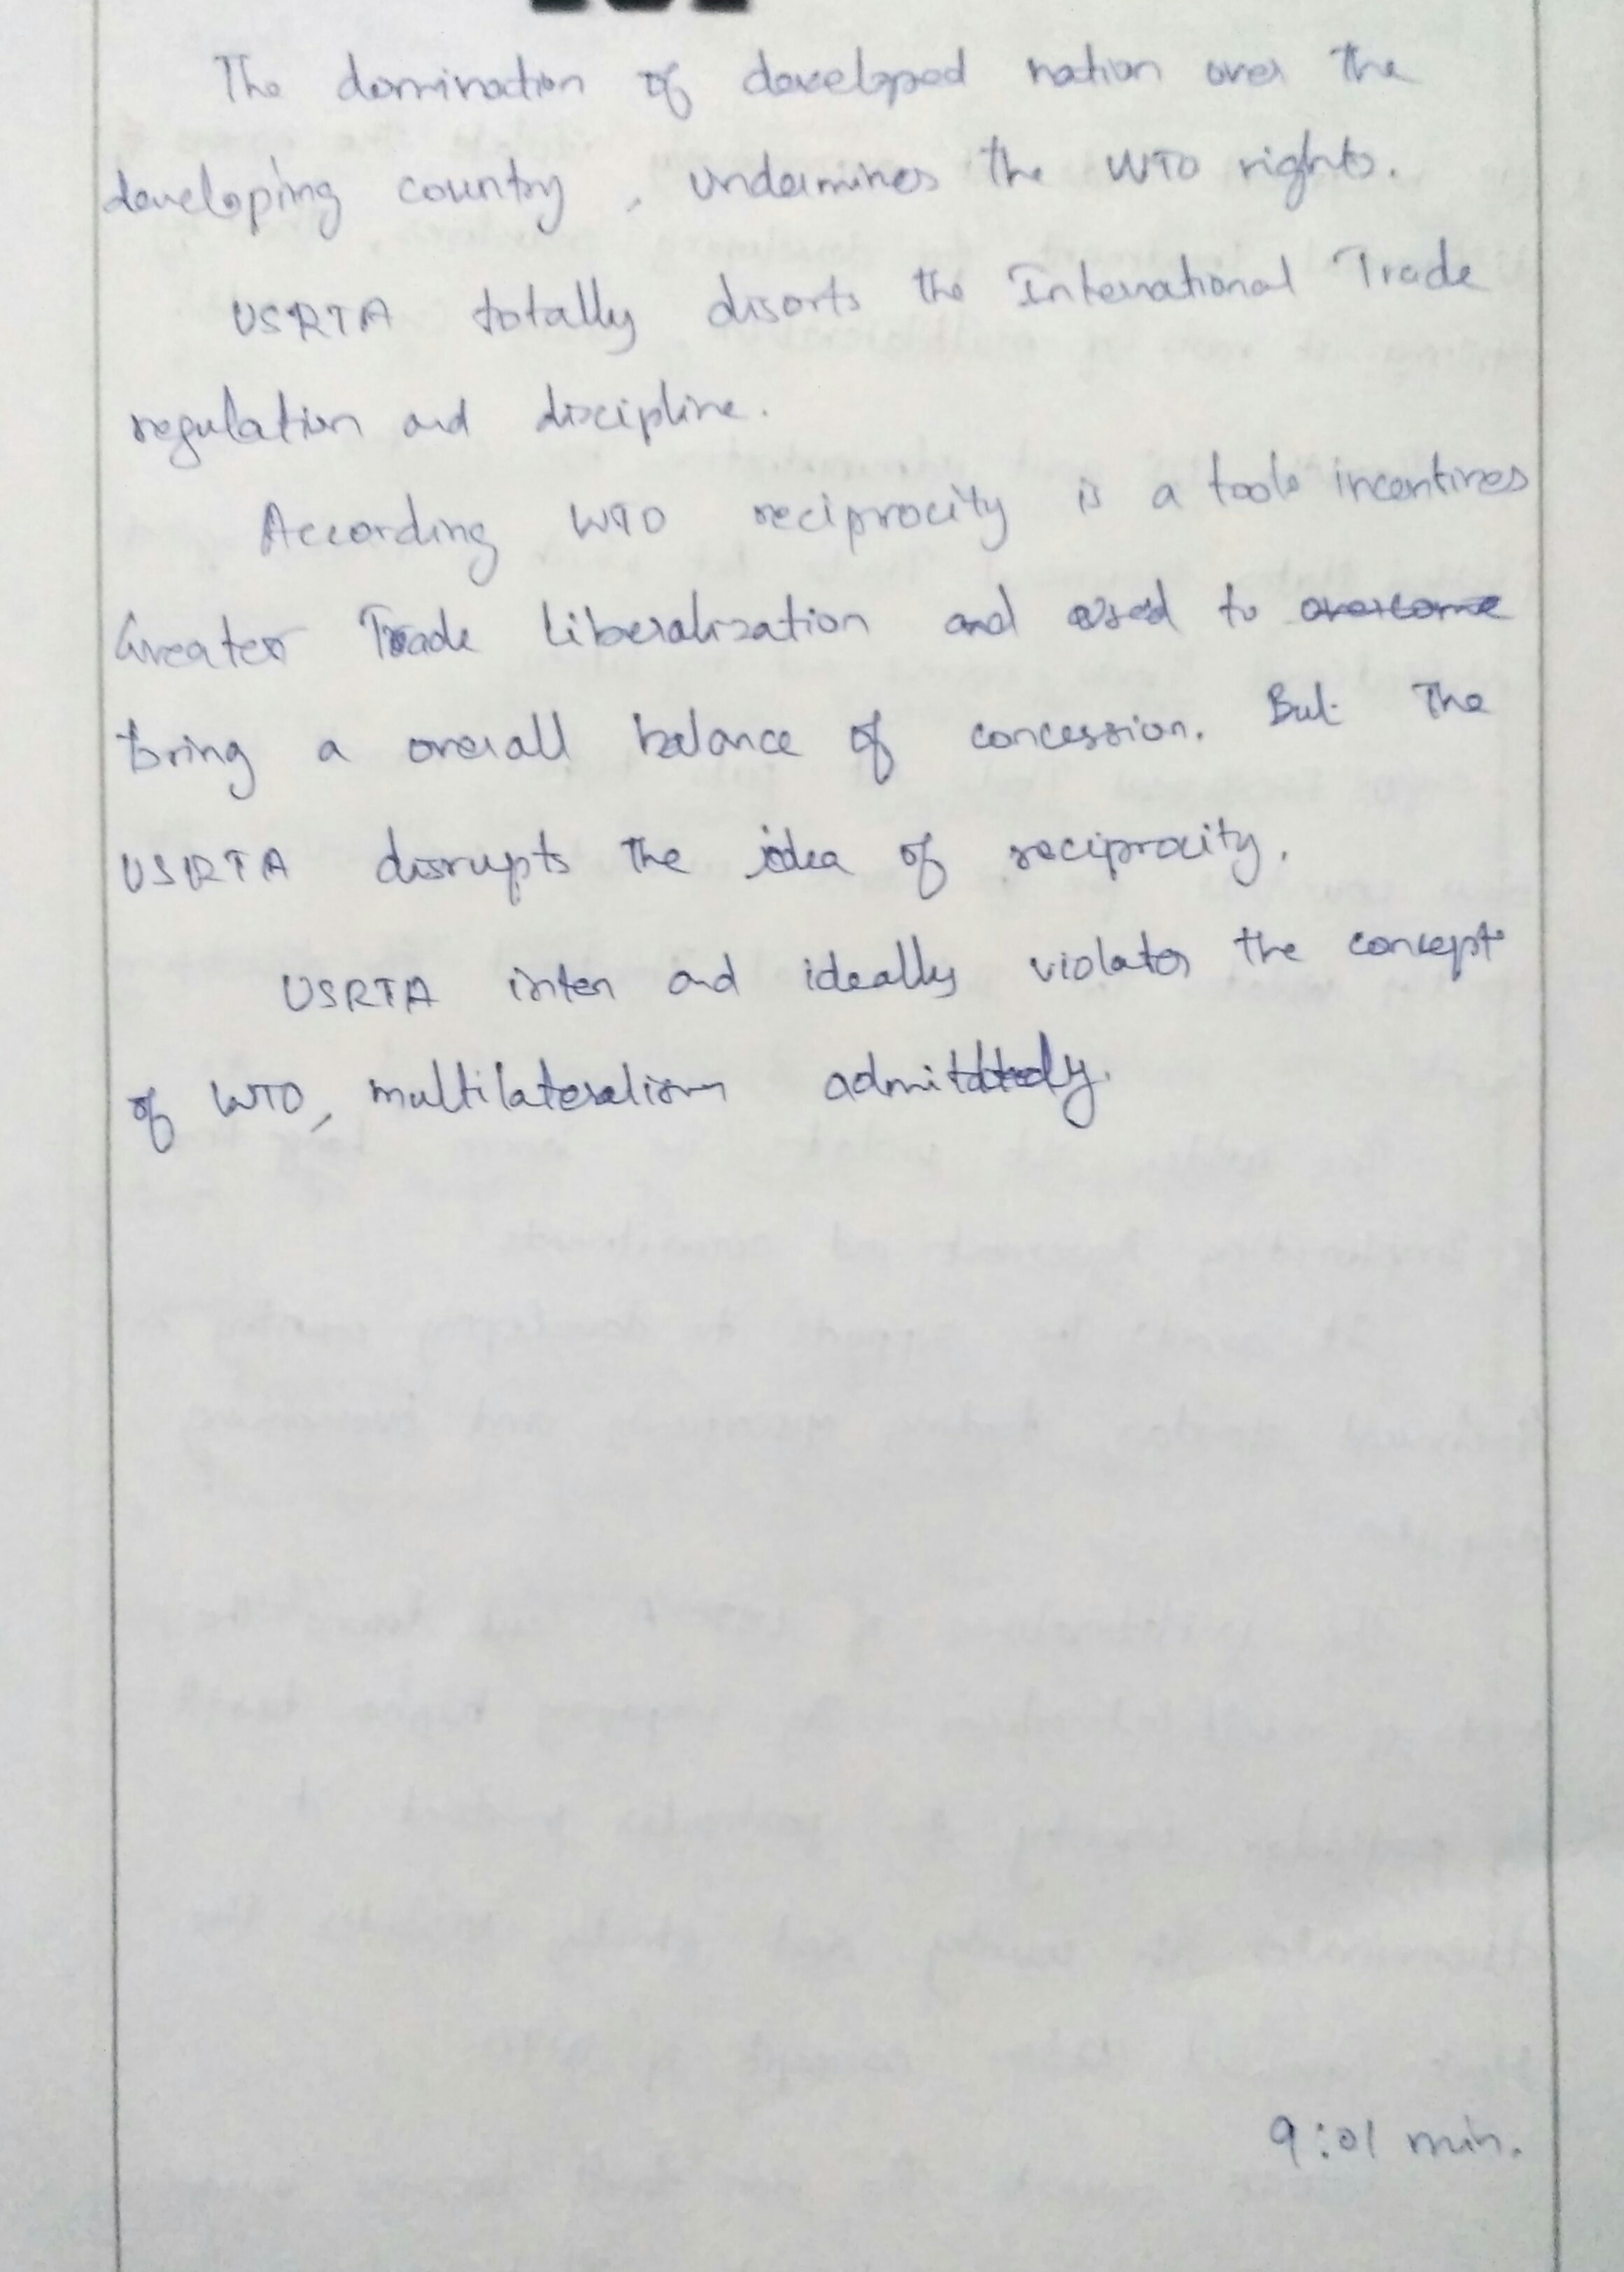 The domination of developed nation over the
developing country, undermines the WTO rights.
USRTA totally disorts the International Trade
regulation and discipline.
According WTO reciprocity is a tools incentives
Greater Trade liberalization and used to overcome
bring a overall balance of concession. But The
USRTA disrupts the idea of reciprocity.
USRTA inten and ideally violates the concept
of WTO, multilateralism admittedly.
9:01 min.